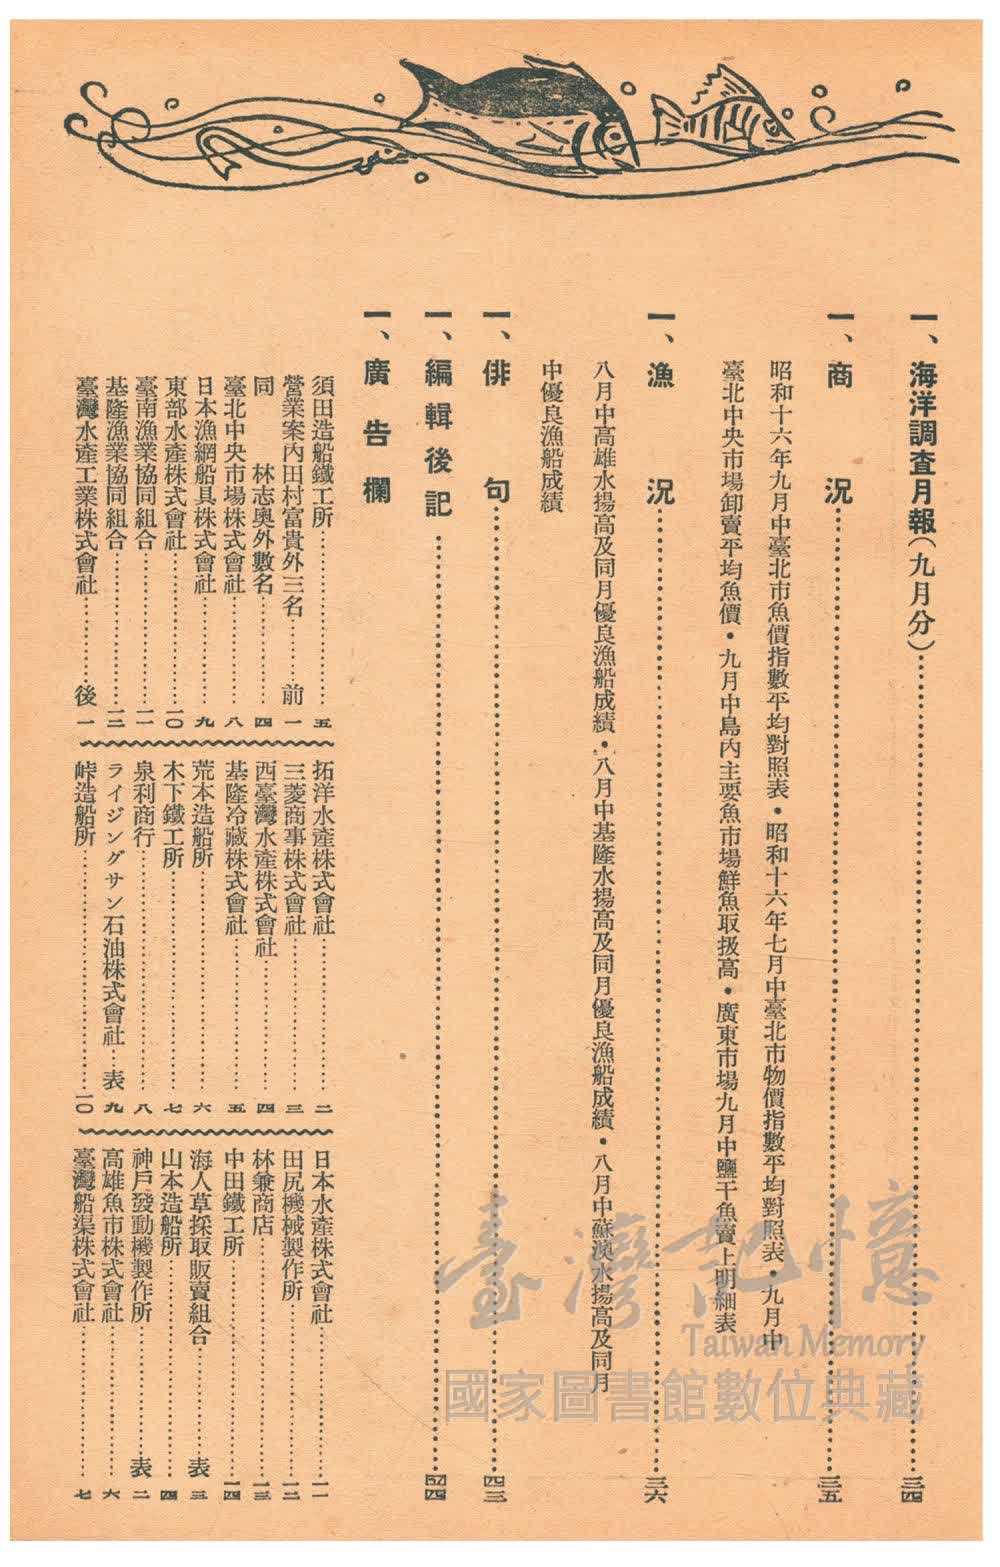 一、海洋調査月報（九月分）……三四
一、商況……三五
昭和十六年九月中臺北市魚價指數平均對照表・昭和十六年七月中臺北市物價指數平均對照表・九月中
臺北中央市場卸賣平均魚價・九月中島內主要魚市場鮮魚取扱高・廣東市場九月中鹽干魚賣上明細表
一、漁況……三六
八月中高雄水揚高及同月優良漁船成績・八月中基隆水揚高及同月優良漁船成績・八月中蘇澳水揚高及同月
中優良漁船成績
一、俳句……四三
一、編輯後記……四四
一、廣告欄
須田造船鐵工所……五
營業案內田村富貴外三名……前一
同 林志奧外數名……四
臺北中央市場株式會社……八
日本漁網船具株式會社……九
東部水產株式會社……一〇
臺南漁業協同組合……一一
基隆漁業協同組合……一二
臺灣水產工業株式會社……後一
拓洋水產株式會社……二
三菱商事株式會社……三
西臺灣水產株式會社……四
基隆冷藏株式會社……五
荒本造船所……六
木下鐵工所……七
泉利商行……八
ライジングサン石油株式會社……表九
峠造船所……一〇
日本水產株式會社……一一
田尻機械製作所……一二
林兼商店……一三
中田鐵工所……一四
海人草採取販賣組合……表三
山本造船所……四
神戶發動機製作所……表二
高雄魚市株式會社……六
臺灣船渠株式會社……七
臺灣記憶
Taiwan Memory
國家圖書館數位典藏